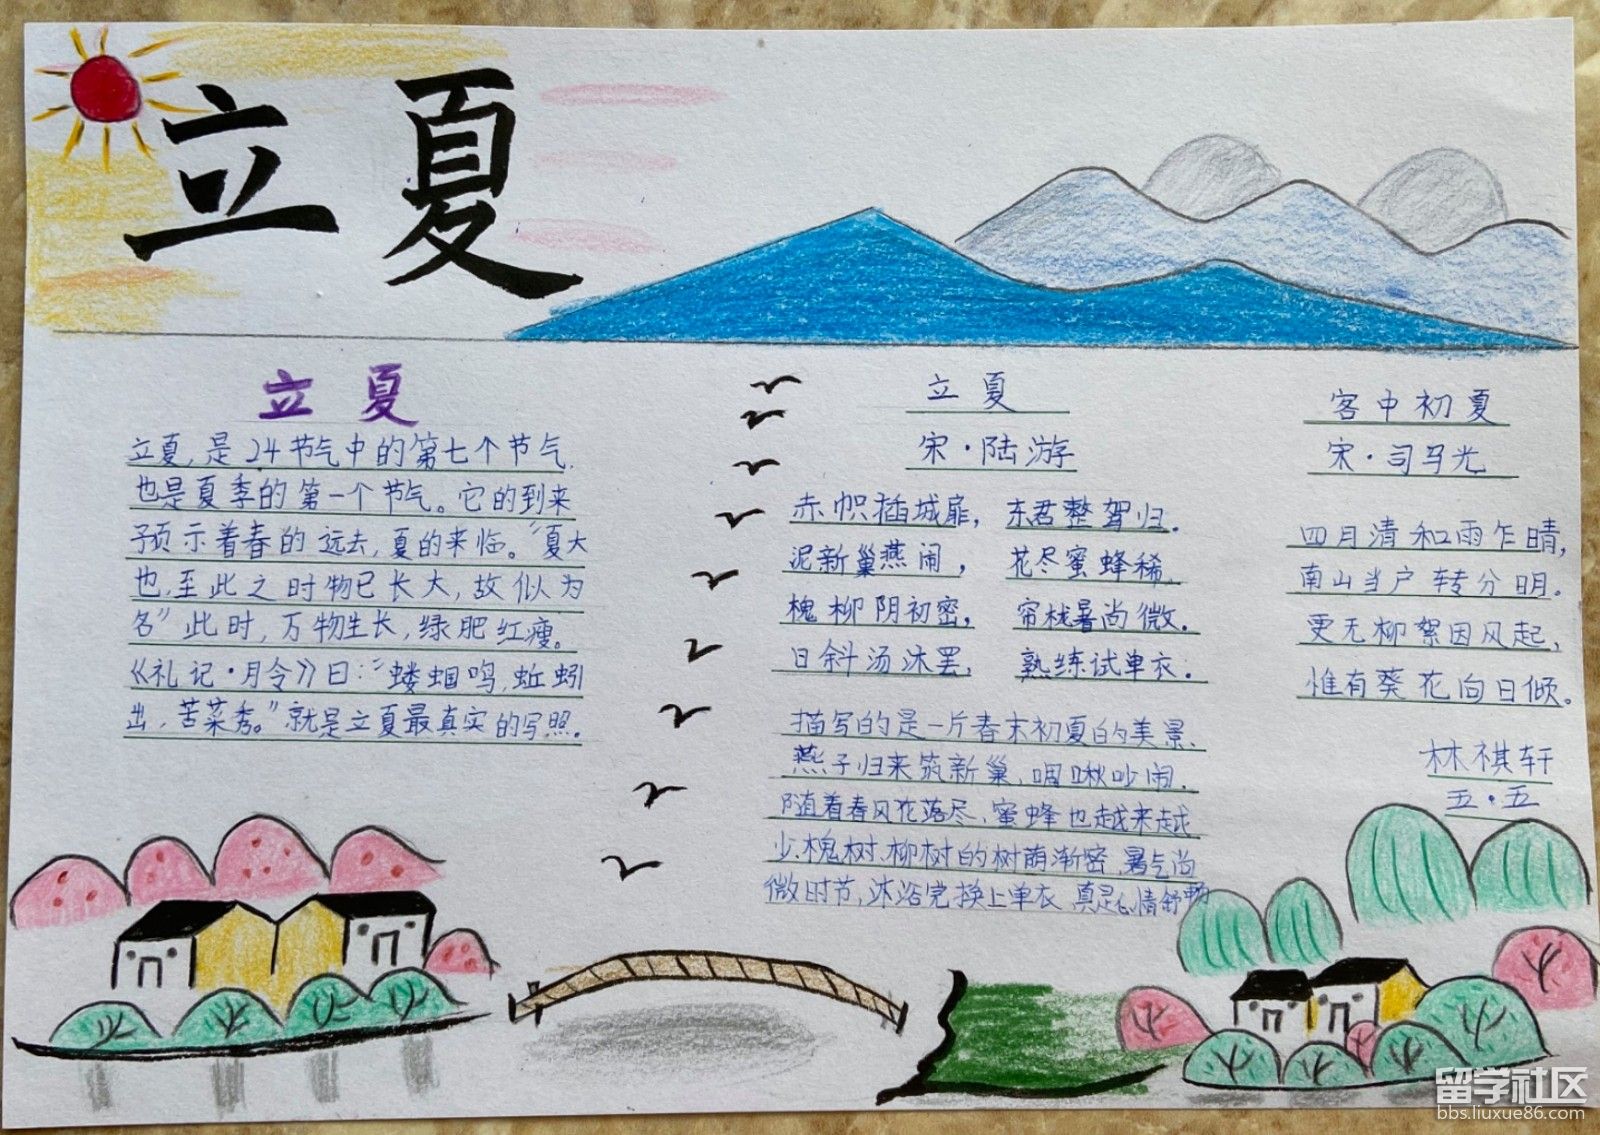 立夏
立夏
立夏,是24节气中的第七个节气.
也是夏季的第一个节气。它的到来
预示着春的远去,夏的来临。“夏大
也,至此之时物已长大,故似为
名”此时,万物生长,绿肥红瘦。
《礼记·月令》曰:“蝼蝈鸣,蚯蚓
出,苦菜秀。”就是立夏最真实的写照.
立夏
宋·陆游
赤帜插城扉, 东君整驾归.
泥新巢燕闹, 花尽蜜蜂稀.
槐柳阴初密, 帘栊暑尚微.
日斜汤沐罢, 熟练试单衣.
描写的是一片春末初夏的美景.
燕子归来筑新巢,啁啾吵闹.
随着春风花落尽,蜜蜂也越来越
少.槐树、柳树的树荫渐密,暑气尚
微时节,沐浴完换上单衣 真是心情舒畅
客中初夏
宋·司马光
四月清和雨乍晴,
南山当户转分明.
更无柳絮因风起,
惟有葵花向日倾。
林祺轩
五·五
留学社区
bbs.liuxue86.com